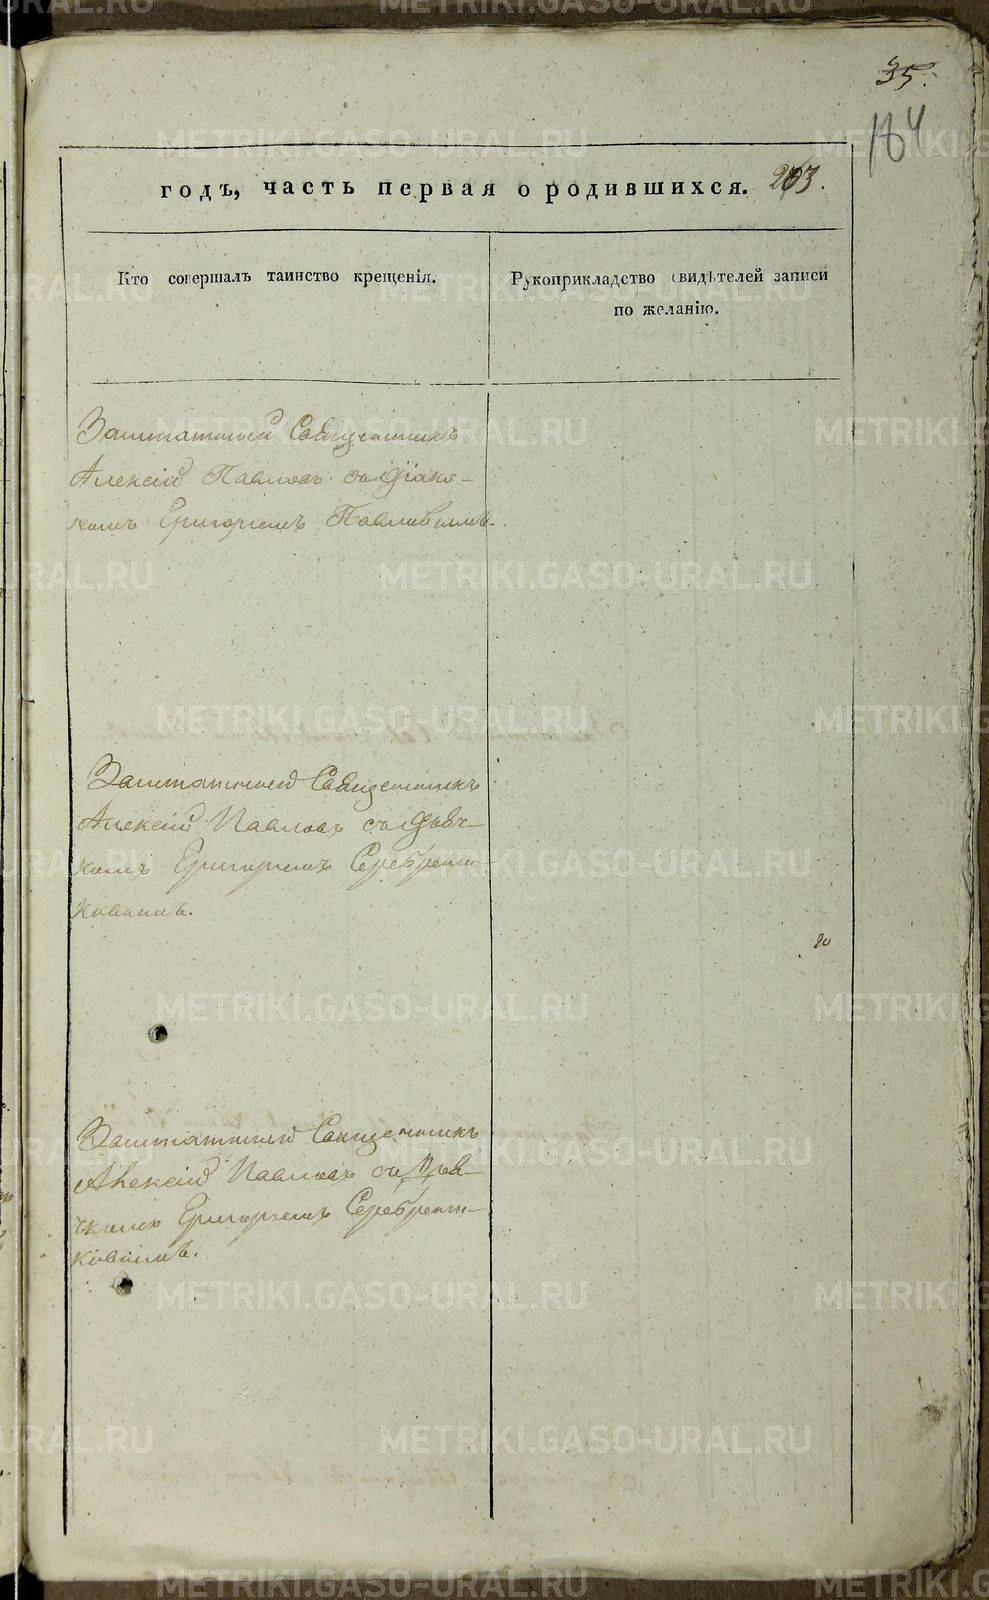 35.
184
годъ, часть первая о родившихся. 203.
Кто совершалъ таинство крещенія.
Рукоприкладство свидѣтелей записи
по желанію.
Заштатный Священникъ
Алексій Павловъ съ Діако-
номъ Григоріемъ Павловымъ.
Заштатный Священникъ
Алексій Павловъ съ Дьяч-
комъ Григоріемъ Серебрени-
ковымъ.
Заштатный Священникъ
Алексій Павловъ съ Дья-
чкомъ Григоріемъ Серебрени-
ковымъ.
METRIKI.GASO-URAL.RU